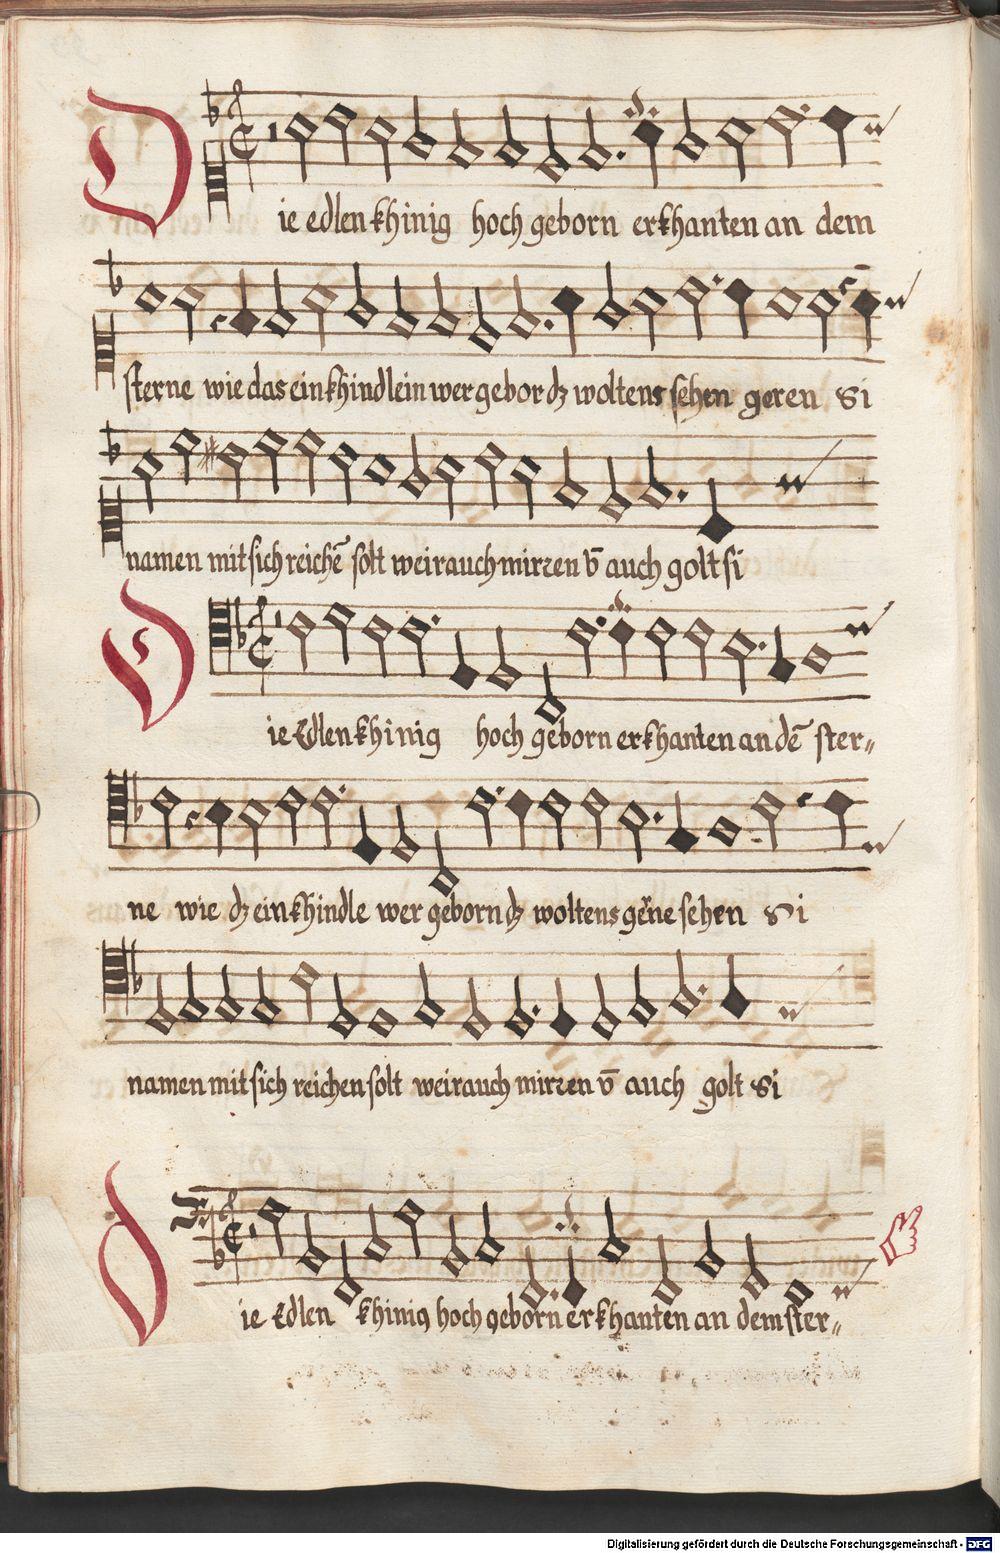 Die edlen khinig hoch geborn erkhanten an dem
sterne wie das ein khindlein wer gebor dz woltens sehen geren Si
namen mit sich reichē solt weirauch mirren v̄ auch golt si
Die Edlen khinig hoch geborn erkhanten an dē ster„
ne wie dz ein khindle wer geborn dz woltens gerne sehen Si
namen mit sich reichen solt weirauch mirren v̄ auch golt Si
Die Edlen khinig hoch geborn erkhanten an dem ster„
Digitalisierung gefördert durch die Deutsche Forschungsgemeinschaft - DFG